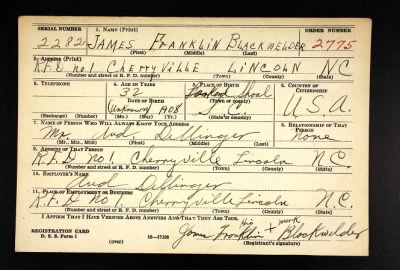 SERIAL NUMBER 1. NAME (Print) ORDER NUMBER
2282 JAMES FRANKLIN BLACKWELDER 2775
(First) (Middle) (Last)
2. ADDRESS (Print)
R.F.D. no 1 CHERRYVILLE LINCOLN NC
(Number and street or R. F. D. number) (Town) (County) (State)
3. TELEPHONE 4. AGE IN YEARS 5. PLACE OF BIRTH 6. COUNTRY OF CITIZENSHIP
32 Shoal
DATE OF BIRTH (Town or county)
Unknown 1908 U.S.A.
(Exchange) (Number) (Mo.) (Day) (Yr.) (State or country)
7. NAME OF PERSON WHO WILL ALWAYS KNOW YOUR ADDRESS 8. RELATIONSHIP OF THAT PERSON
Mr. Aud Dellinger None
(Mr., Mrs., Miss) (First) (Middle) (Last)
9. ADDRESS OF THAT PERSON
R.F.D. No 1. Cherryville Lincoln N.C.
(Number and street or R. F. D. number) (Town) (County) (State)
10. EMPLOYER'S NAME
Aud Dellinger
11. PLACE OF EMPLOYMENT OR BUSINESS
R.F.D No 1. Cherryville Lincoln N.C.
(Number and street or R. F. D. number) (Town) (County) (State)
I AFFIRM THAT I HAVE VERIFIED ABOVE ANSWERS AND THAT THEY ARE TRUE.
REGISTRATION CARD his mark
D. S. S. Form 1 (over) 16—17105 James Franklin X Blackwelder
(Registrant's signature)